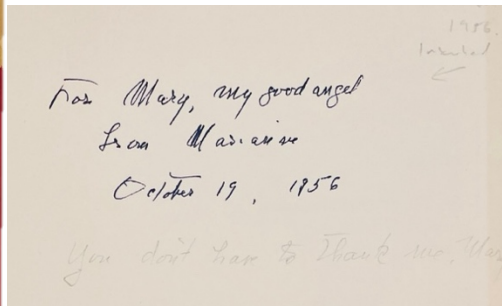 1956.
Inscribed
For Mary, my good angel
from Marianne
October 19, 1956
You don't have to Thank me, Mar